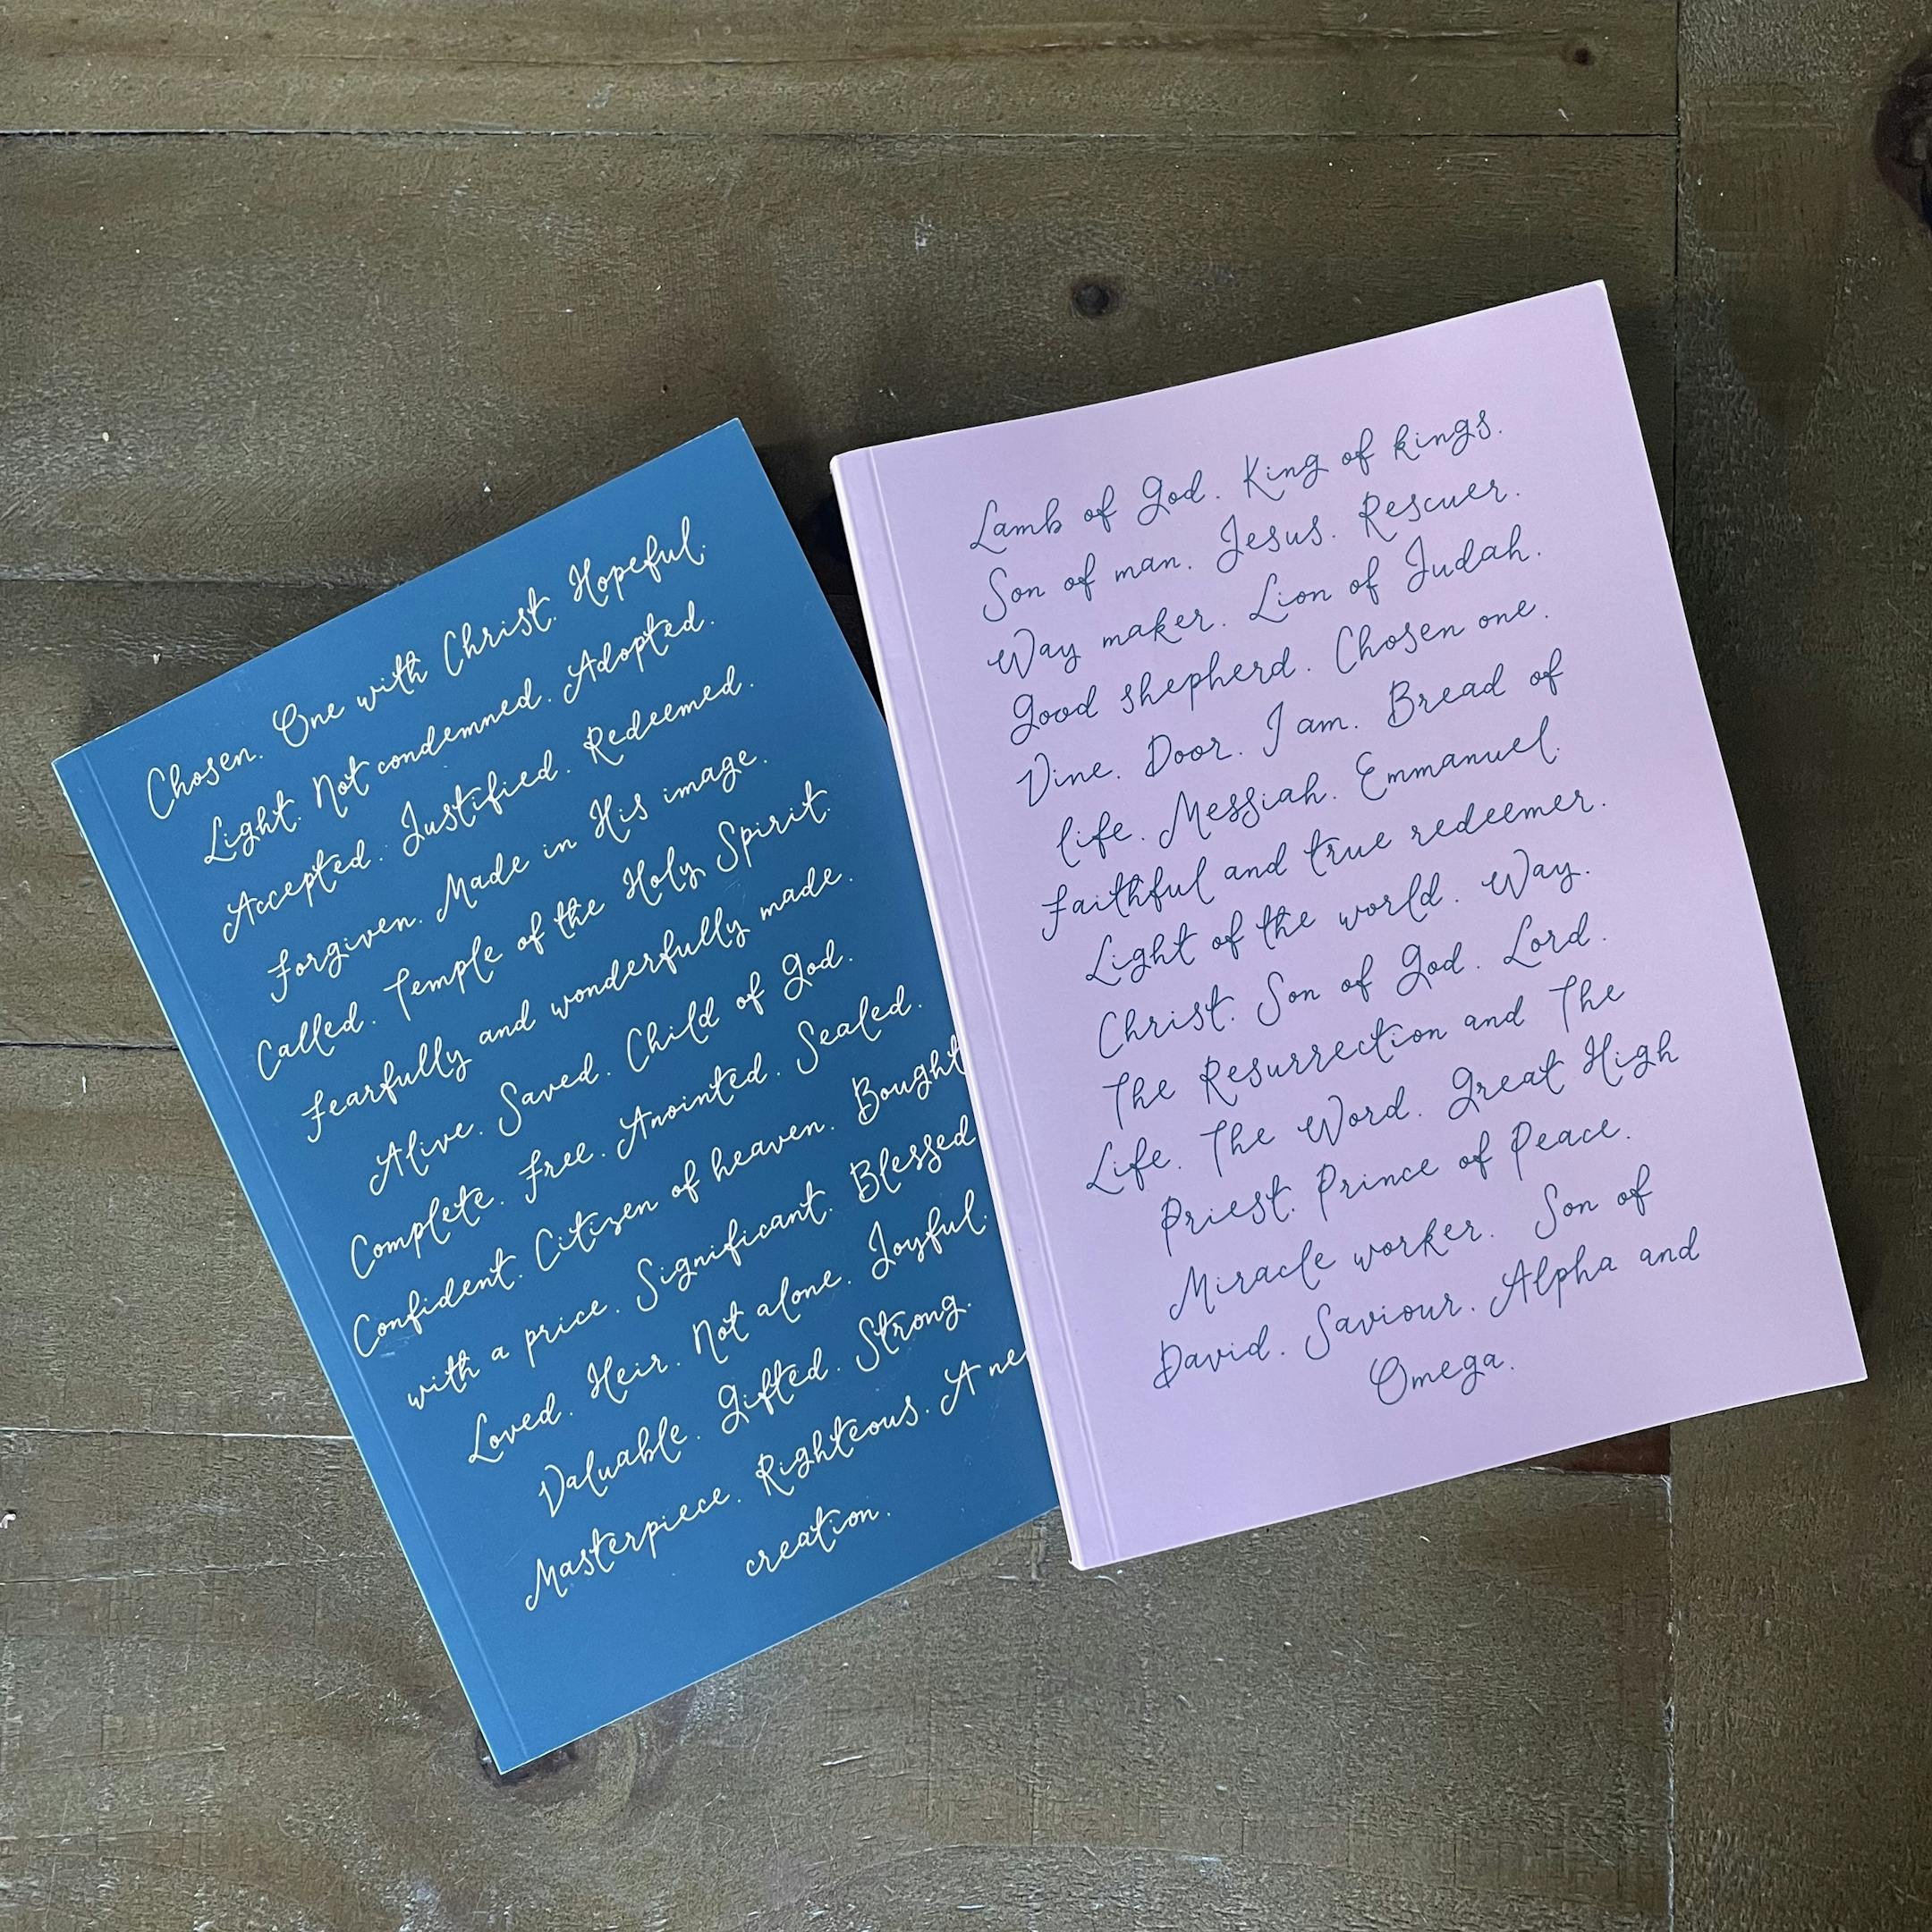 Chosen. One with Christ. Hopeful.
Light. Not condemned. Adopted.
Accepted. Justified. Redeemed.
Forgiven. Made in His image.
Called. Temple of the Holy Spirit.
Fearfully and wonderfully made.
Alive. Saved. Child of God.
Complete. Free. Anointed. Sealed.
Confident. Citizen of heaven. Bought
with a price. Significant. Blessed
Loved. Heir. Not alone. Joyful.
Valuable. Gifted. Strong.
Masterpiece. Righteous. A
creation.
Lamb of God. King of kings.
Son of man. Jesus. Rescuer.
Way maker. Lion of Judah.
Good shepherd. Chosen one.
Vine. Door. I am. Bread of
life. Messiah. Emmanuel.
Faithful and true redeemer.
Light of the world. Way.
Christ. Son of God. Lord.
The Resurrection and The
Life. The Word. Great High
Priest. Prince of Peace.
Miracle worker. Son of
David. Saviour. Alpha and
Omega.